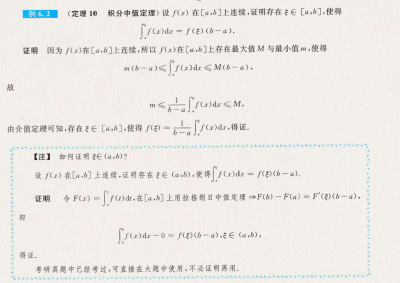 例 6.2 (定理 10 积分中值定理) 设 f(x) 在[a,b]上连续,证明存在 ξ∈[a,b],使得
∫ₐᵇ f(x)dx = f(ξ)(b−a).
证明 因为 f(x)在[a,b]上连续,所以 f(x)在[a,b]上存在最大值 M 与最小值 m,使得
m(b−a)≤∫ₐᵇ f(x)dx≤M(b−a),
故
m≤1/(b−a)∫ₐᵇ f(x)dx≤M,
由介值定理可知,存在 ξ∈[a,b],使得 f(ξ)=1/(b−a)∫ₐᵇ f(x)dx,得证.
【注】 如何证明 ξ∈(a,b)?
设 f(x) 在[a,b]上连续,证明存在 ξ∈(a,b),使得∫ₐᵇ f(x)dx=f(ξ)(b−a).
证明 令 F(x)=∫ₐˣ f(t)dt,在[a,b]上用拉格朗日中值定理⇒F(b)−F(a)=F′(ξ)(b−a),
即
∫ₐᵇ f(x)dx−0=f(ξ)(b−a),ξ∈(a,b),
得证.
考研真题中已经考过,可直接在大题中使用,不必证明再用.